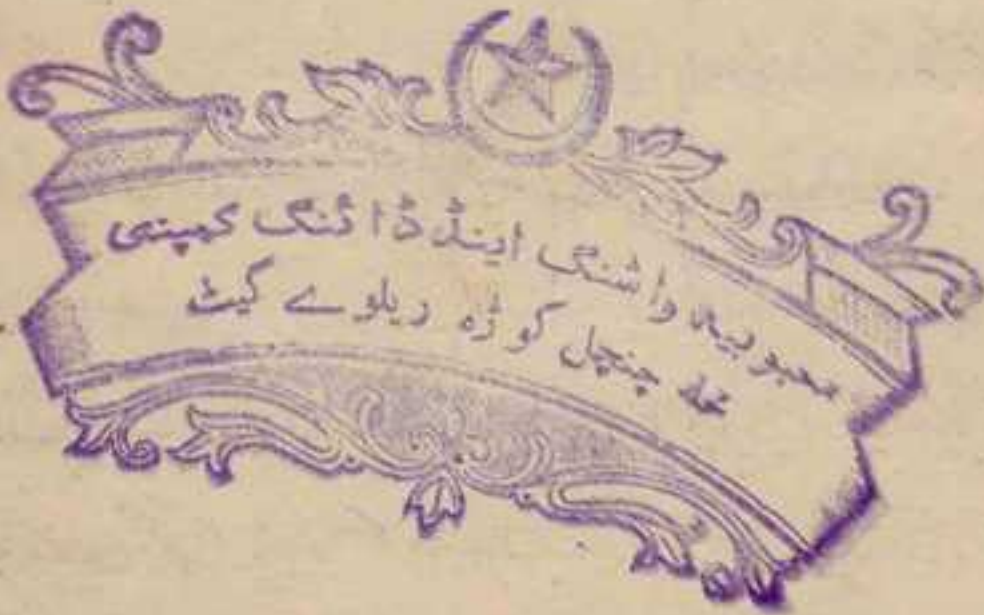 محبوبیہ واشنگ اینڈ ڈائنگ کمپنی
چنچل گوڑہ ریلوے گیٹ